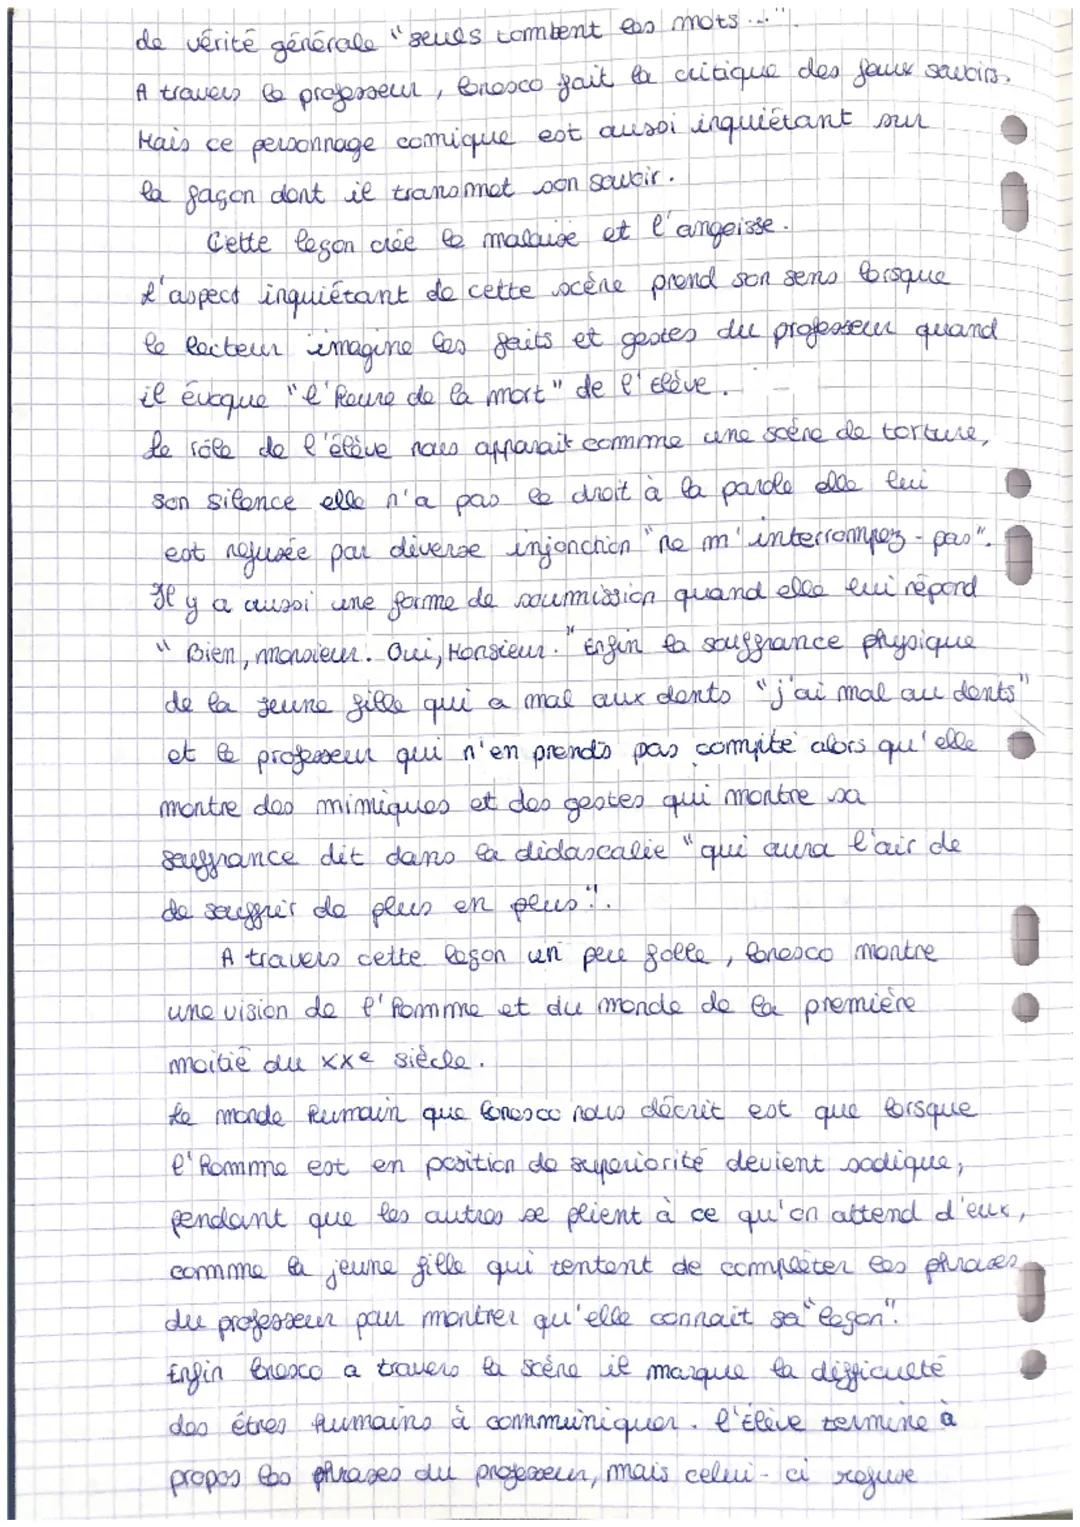 de vérité générale "seuls tombent les mots ..."
A travers le professeur, Ionesco fait la critique des faux savoirs.
Mais ce personnage comique est aussi inquiétant sur
la façon dont il transmet son savoir.
Cette leçon crée le malaise et l'angoisse.
L'aspect inquiétant de cette scène prend son sens lorsque
le lecteur imagine les faits et gestes du professeur quand
il évoque "l'heure de la mort" de l'élève.
Le rôle de l'élève nous apparait comme une scène de torture,
son silence elle n'a pas le droit à la parole elle lui
est refusée par diverse injonction "ne m'interrompez-pas".
Il y a aussi une forme de soumission quand elle lui répond
"Bien, monsieur. Oui, Monsieur." Enfin la souffrance physique
de la jeune fille qui a mal aux dents "j'ai mal au dents"
et le professeur qui n'en prends pas compte alors qu'elle
montre des mimiques et des gestes qui montre sa
souffrance dit dans la didascalie "qui aura l'air de
de souffrir de plus en plus".
A travers cette leçon un peu folle, Ionesco montre
une vision de l'homme et du monde de la première
moitié du XXe siècle.
Le monde humain que Ionesco nous décrit est que lorsque
l'homme est en position de superiorité devient sadique,
pendant que les autres se plient à ce qu'on attend d'eux,
comme la jeune fille qui tentent de compléter les phrases
du professeur pour montrer qu'elle connait sa "leçon".
Enfin Ionesco a travers la scène il marque la difficulté
des êtres humains à communiquer. l'élève termine à
propos les phrases du professeur, mais celui-ci refuse